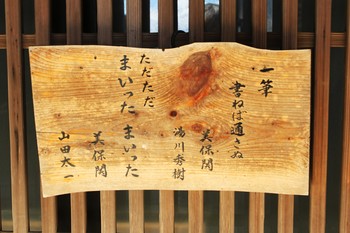 一筆
書ねば通さぬ
美保関
湯川秀樹
ただただ
まいった まいった
美保関
山田太一